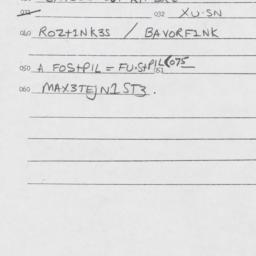 032 XU-SN
040 ROZ+1NK3S / BAVORF1NK
050 A FOS+PIL = FU.S+PIL(075
060 MAX3TEJN1ST3.